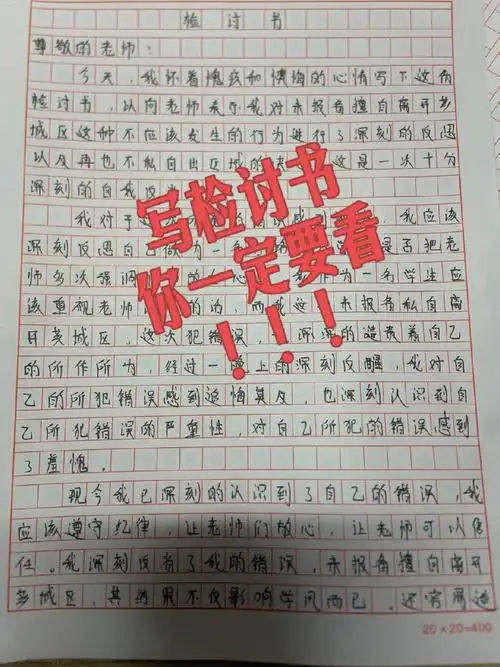 检讨书
尊敬的老师：
今天，我怀着愧疚和懊悔的心情写下这份
检讨书，以向老师表示我对未报备擅自离开
城区这种不应该发生的行为进行了深刻的反思
以及再也不私自出区域的 这是一次十分
深刻的自我反省
我对于这次 我应该
深刻反思自己 是否把老
师多次强调 作为一名学生应
该重视老师 的话，而我这 未报备私自离
开 城区，这次犯错误， 深深的 责着自己
的所作所为，经过一晚上的深刻反醒，我对自
己的所犯错误感到追悔莫及，也深刻认识到自
己所犯错误的严重性，对自己所犯的错误感到
了羞愧。
现今我已深刻的认识到了自己的错误，我
应该遵守纪律，让老师们放心，让老师可以信
任。我深刻反省了我的错误，未报备擅自离开
城区，其 果不仅影响学风而已，还容易造
写检讨书
你一定要看
！！！
20×20=400